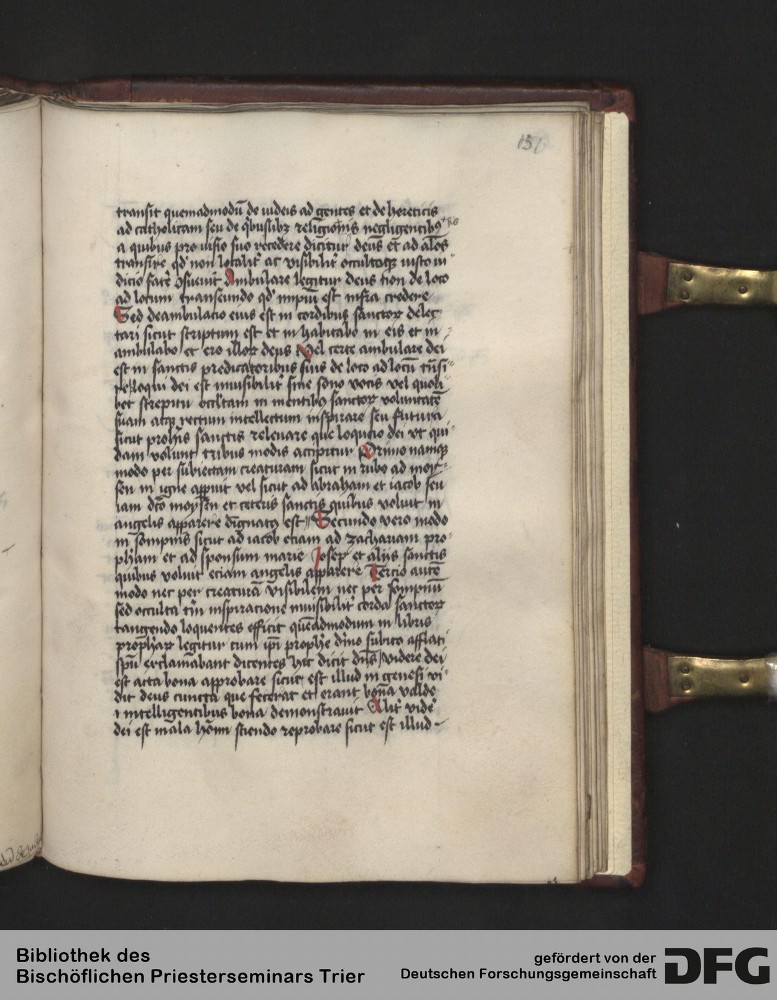 151
transit quemadmodū de iudeis ad gentes et de hereticis
ad catholicam seu de q̄buslibꝫ religionis negligentibꝰ
a quibus pro uiso suo recedere dicitur deus et ad alios
transire qd' non localit' ac visibilit' occultoqꝫ iusto iu-
dicio fac'e ꝯsueuit Ambulare legitur deus non de loco
ad locum transeundo qd' impiū est credere
Sed deambulacio eius est in cordibus sanctoꝝ delec-
tari sicut scriptum est et in habitabo in eis et in-
ambulabo et ero illoꝝ deus Vel certe ambulare dei
est in sanctis predicatoribus suis de loco ad locū t̄nsi-
re loqui dei est inuisibilit' sine sono vocis vel quoli-
bet strepitu occl'tam in mentibꝰ sanctoꝝ voluntatē
suam atqꝫ rectum intellectum inspirare seu futura
sicut proph'is sanctis releuare que loqucio dei vt qui-
dam volunt tribus modis accipitur Primo namqꝫ
modo per subiectam creaturam sicut in rubo ad moy-
sen in igne apparuit vel sicut ad abraham et iacob seu
iam dc̄o moysen et ceteris sanctis quibus voluit in
angelis apparere dignatꝰ est Secundo vero modo
in sompnis sicut ad iacob etiam ad zachariam pro-
ph'am et ad sponsum marie Iosep et alijs sanctis
quibus voluit etiam angelis apparere Tercio autē
modo nec per creaturā visibilem nec per sompnū
sed occulta t̄m inspiracione inuisibilit' corda sanctoꝝ
tangendo loquentes efficit quēadmodum in libris
proph'aꝝ legitur cum ip̄i prophe diuo subito afflati
sp̄u exclamabant dicentes hec dicit dn̄s videre dei
est acta bona approbare sicut est illud in genesi vi-
dit deus cuncta que fecerat et erant bona valde
i intelligentibus bona demonstrauit Alit' vide'
dei est mala hōm sciendo reprobare sicut est illud
Bibliothek des
Bischöflichen Priesterseminars Trier
gefördert von der
Deutschen Forschungsgemeinschaft
DFG